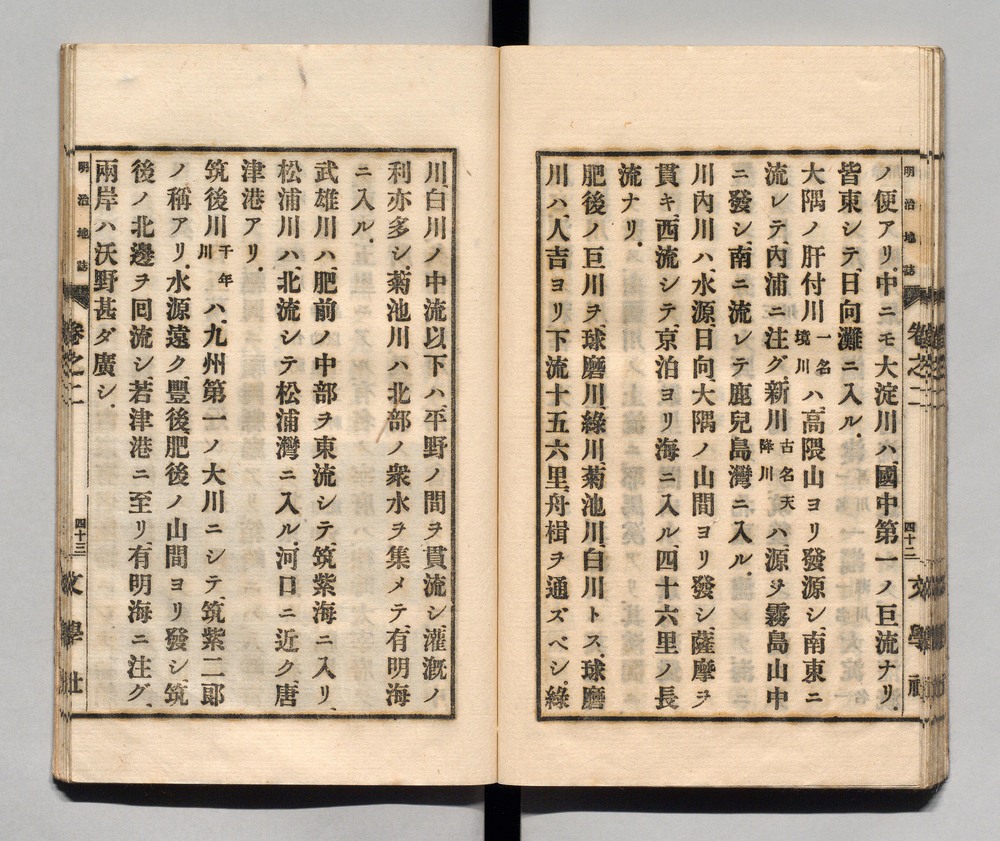 明治地誌 卷之二 四十二 文學社
ノ便アリ、中ニモ大淀川ハ、國中第一ノ巨流ナリ、
皆東シテ、日向灘ニ入ル、
大隅ノ肝付川一名境川ハ、高隈山ヨリ發源シ、南東ニ
流レテ、內浦ニ注グ、新川古名天降川ハ、源ヲ霧島山中
ニ發シ、南ニ流レテ鹿兒島灣ニ入ル、
川內川ハ、水源、日向、大隅ノ山間ヨリ發シ、薩摩ヲ
貫キ、西流シテ、京泊ヨリ海ニ入ル、四十六里ノ長
流ナリ、
肥後ノ巨川ヲ、球磨川、綠川、菊池川、白川トス、球磨
川ハ、人吉ヨリ下流十五六里、舟楫ヲ通ズベシ、綠
川、白川ノ中流以下ハ、平野ノ間ヲ貫流シ、灌漑ノ
利亦多シ、菊池川ハ北部ノ衆水ヲ集メテ、有明海
ニ入ル、
武雄川ハ、肥前ノ中部ヲ東流シテ、筑紫海ニ入リ、
松浦川ハ、北流シテ松浦灣ニ入ル、河口ニ近ク、唐
津港アリ、
筑後川千年川ハ、九州第一ノ大川ニシテ、筑紫二郞
ノ稱アリ、水源遠ク、豐後、肥後ノ山間ヨリ發シ、筑
後ノ北邊ヲ回流シ、若津港ニ至リ、有明海ニ注グ、
兩岸ハ沃野甚ダ廣シ、
明治地誌 卷之二 四十三 文學社